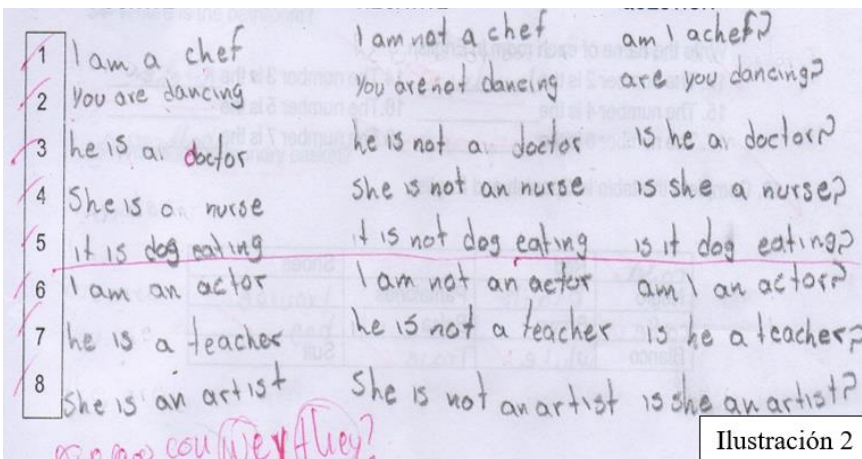 1 I am a chef I am not a chef am I a chef?
2 You are dancing You are not dancing are you dancing?
3 he is an doctor he is not an doctor is he an doctor?
4 She is an nurse She is not an nurse is she a nurse?
5 it is dog eating it is not dog eating is it dog eating?
6 I am an actor I am not an actor am I an actor?
7 he is a teacher he is not a teacher is he a teacher?
8 She is an artist She is not an artist is she an artist?
con We y they?
Ilustración 2